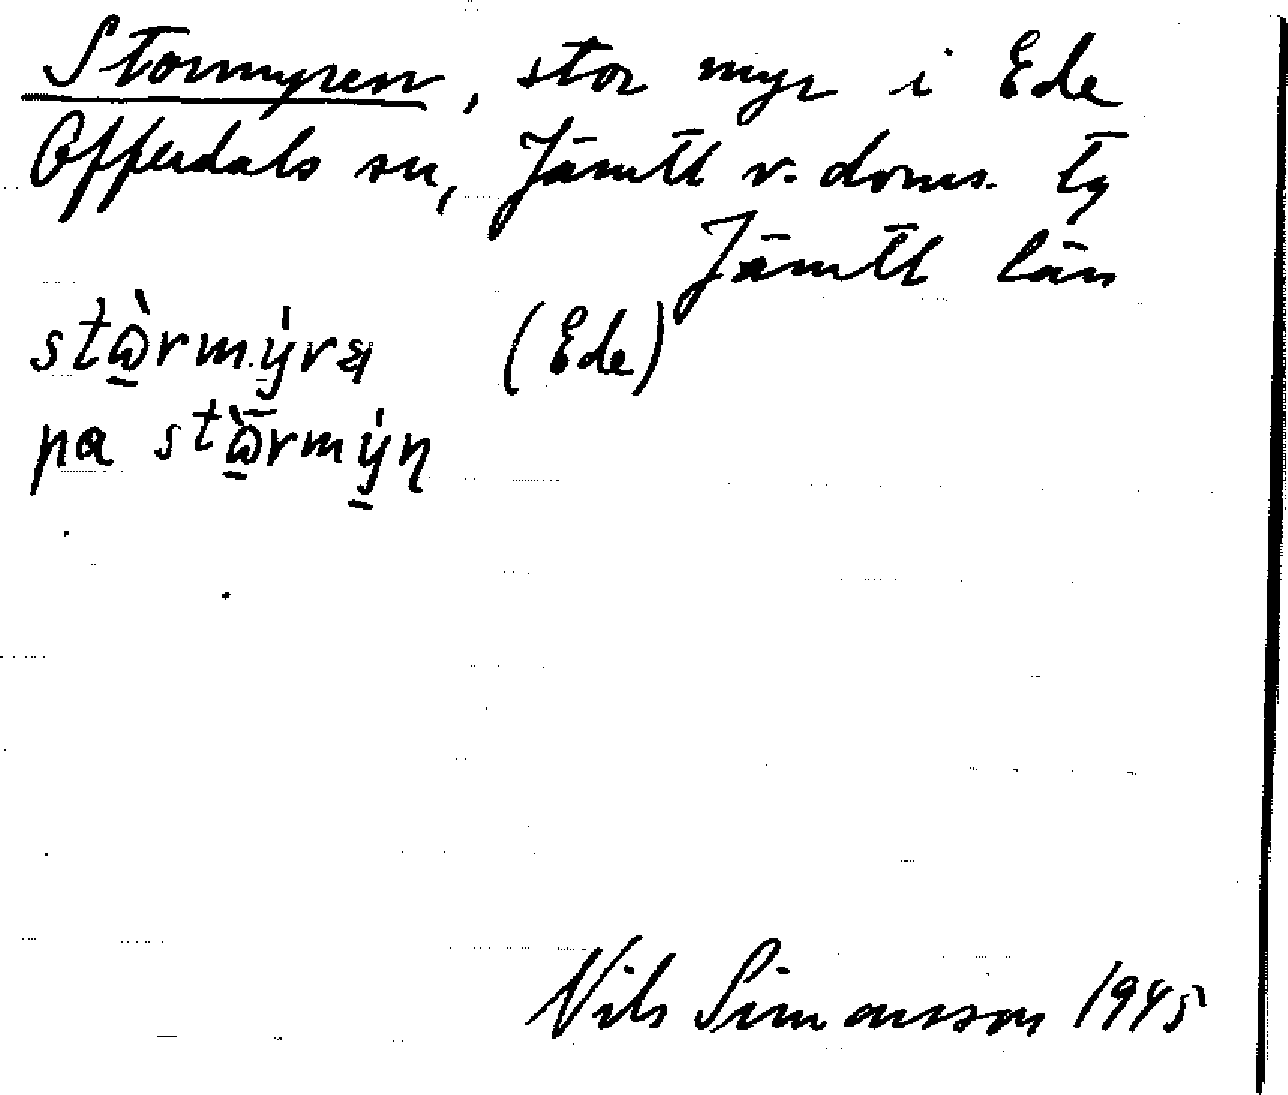 Stormyren, stor myr i Ede
Offerdals sn, Jämtl v. doms. tg
Jämtl län
(Ede)
pa
Nils Simonsson 1945